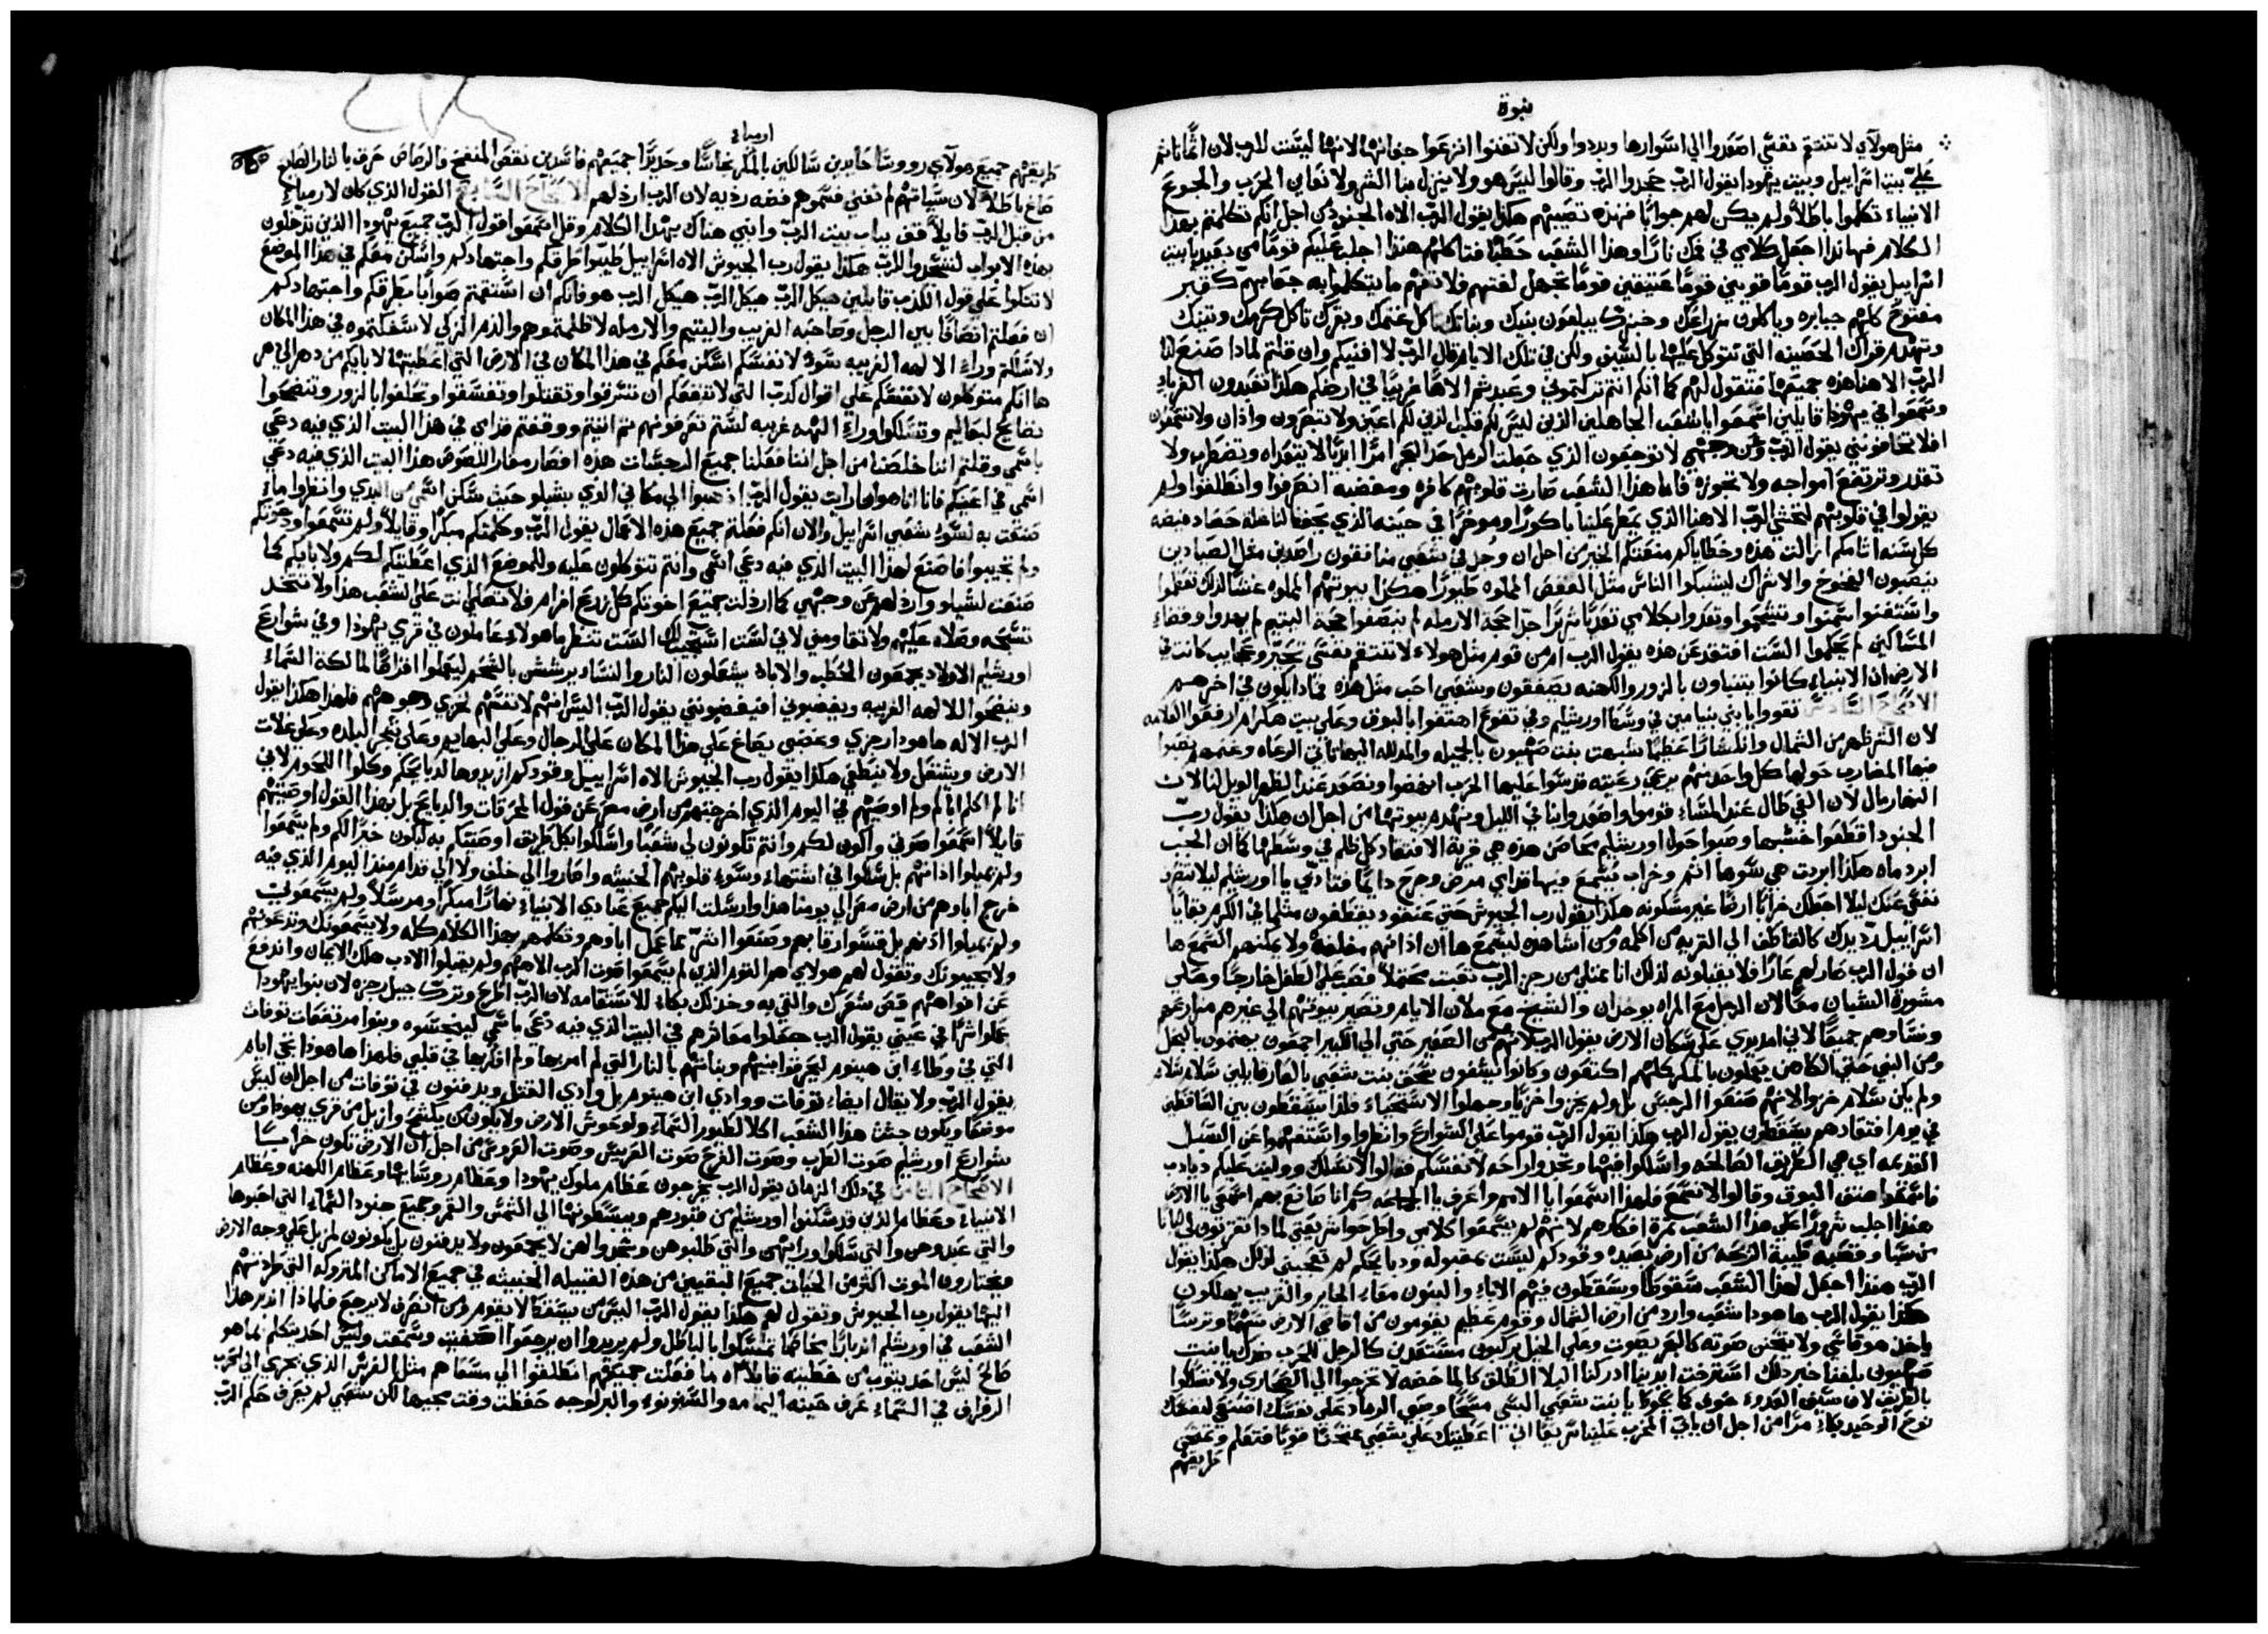 نبوة
مثل هولاي لا تنتقم نفسي اصعدوا الي اسوارها وبددوا ولكن لا تفنوا انزعوا حفانها لانها ليست للرب لان اثما اثم
علي بيت اسراييل وبيت يهودا يقول الرب جحدوا الرب وقالوا ليس هو ولا ينزل بنا الشر ولا نعاين الحرب والجوع
الانبياء تكلموا باطلا ولم يكن لهم جوابا فهذه تصيبهم هكذا يقول الرب الاه الجنود من اجل انكم تكلمتم بهذا
الكلام فها انذا اجعل كلامي في فمك نارا وهذا الشعب حطبا فتاكلهم هنذا اجلب عليكم قوما من بعيد يا بيت
اسراييل يقول الرب قوما قويين قوما عتيقين قوما تجهل لغتهم فلا تفهم ما يتكلموا به جعابهم كقبر
مفتوح كلهم جبابره وياكلون زراعك وخبزك يبلعون بنيك وبناتك ياكل غنمك وبقرك تاكل كرمك وتينك
وتهدم قراك الحصينه التي تتوكل عليها بالسيف ولكن في تلك الايام قال الرب لا افنيكم وان قلتم لماذا صنع لنا
الرب الاهنا هذه جميعها فتقول لهم كما انكم انتم تركتموني وعبدتم الاها غريبا في ارضكم هكذا تعبدون الغربا
وسمعوا في يهودا قايلين اسمعوا يا الشعب الجاهلين الذين ليس لكم قلب الذين لكم اعين ولا تبصرون واذان ولا تسمعون
افلا تخافوني يقول الرب ومن وجهي لا توجعون الذي جعلت الرمل حدا للبحر امرا ابديا لا يتعداه وتضطرب ولا
تقدر وترتفع امواجه ولا تجوزه فاما هذا الشعب صارت قلوبهم كافره ومغضبه انصرفوا وانطلقوا ولم
يقولوا في قلوبهم لنخشي الرب الاهنا الذي يمطر علينا باكورا وموخرا في حينه الذي يحفظ لنا غلة حصاد
كل سنه اثامكم ازالت هذه وخطاياكم منعتكم الخير من اجل ان وجد في شعبي منافقون راصدين مثل الصيادين
ينصبون الفخوخ والاشراك ليمسكوا الناس مثل القفص المملوه طيورا هكذا بيوتهم المملوه غشا لذلك تعظموا
واستغنوا سمنوا وتشحموا وتعدوا بكلامي تعديا شريرا حق حجة الارمله لم ينصفوا حجة اليتيم لم يهدوا وقضاء
المساكين لم يحكموا الست افتقد عن هذه يقول الرب ام من قوم مثل هولاء لا تنتقم نفسي تحير وعجايب كانت في
الارض ان الانبياء كانوا يتنباون بالزور والكهنه يصفقون وشعبي احب مثل هذه فماذا يكون في اخرهم
الاصحاح السادس تقووا يا بني بنيامين في وسط اورشليم وفي تقوع اهتفوا بالبوق وعلي بيت هكرام ارفعوا العلامه
لان الشر ظهر من الشمال وانكسارا عظيما شبهت بنت صهيون بالجميله والمدلله اليها تاتي الرعاه وغنمهم نصبوا
فيها المضارب حولها كل واحد منهم يرعي رعيته قدسوا عليها الحرب انهضوا ونصعد عند الظهر الويل لنا لان
النهار مال لان الفي طال عند المساء قوموا واصعدوا بنا في الليل ونهدم بيوتها من اجل ان هكذا يقول رب
الجنود اقطعوا خشبها وصبوا حول اورشليم محاصر هذه هي قرية الافتقاد كل ظلم في وسطها كما ان الجب
ابرد ماه هكذا ابردت هي سوها اثم وخراب يسمع فيها قدامي مرض وجرح دايما فتادبي يا اورشليم ليلا تنفرد
نفسي عنك ليلا اجعلك خرابا ارضا غير مسكونه هكذا يقول رب الجيوش حتي عنقود يقطفون مثلما في الكرم بقايا
اسراييل رد يدك كالقاطف الي القرية من اكلمه ومن اشاهده ليسمع ها ان اذانهم مغلفة ولا يمكنهم السمع ها
ان قول الرب صار لهم عارا فلا يقبلونه لذلك انا ممتلي من رجز الرب تعبت محتملا فصب علي الطفل خارجا وعلي
مشورة الشبان معا لان الرجل مع المراه يوخذان والشيخ مع ملان الايام وتصير بيوتهم الي غيرهم مزارعهم
ونساوهم جميعا لاني امد يدي علي سكان الارض يقول الرب لانهم من الصغير حتي الي الكبير اجمعون يهتمون بالبخل
ومن النبي حتي الكاهن يعملون بالمكر كلهم اكتفون وكانوا يشفون سحق بنت شعبي بالعار قايلين سلام سلام
ولم يكن سلام خزوا لانهم صنعوا الرجس بل ولم يخزوا خزيا وجهلوا الاستحياء فلذا يسقطون بين الساقطين
في يوم افتقادهم يسقطون يقول الرب هكذا يقول الرب قوموا علي الشوارع وانظروا واستفهموا عن السبل
القديمه اي هي الطريق الصالحه واسلكوا فيها وتجدوا راحه لانفسكم فقالوا لا نسلك ووليت عليكم ديادب
فاسمعوا صوت البوق وقالوا لا نسمع فلهذا اسمعوا يا الامم واعرف يا الجماعه كم انا صانع بهم اسمعي يا الارض
هنذا اجلب شرورا علي هذا الشعب ثمرة افكارهم لانهم لم يسمعوا كلامي واطرحوا شريعتي لماذا تقربون لي لبانا
من سبا وقصبه طيبة الرايحه من ارض بعيده وقودكم ليست بمقبوله ودبايحكم لم تعجبني لذلك هكذا يقول
الرب هنذا اجعل لهذا الشعب سقوطا ويسقطون فيهم الاباء والبنون معا الجار والقريب يهلكون
هكذا يقول الرب ها هوذا شعب وارد من ارض الشمال وقوم عظيم يقومون من اقاصي الارض سهما وترسا
ياخذ هو قاسي ولا يتحنن صوته كالبحر يصوت وعلي الخيل يركبون مستعدين كالرجل للحرب ضدك يا بنت
صهيون بلغنا خبر ذلك استرخت ايدينا ادركنا البلا الطلق كالماخضه لا تخرجوا الي الصحاري ولا تسلكوا
بالطريق لان سيف العدو خوف كما يحوط يا بنت شعبي البسي مسحا وضعي الرماد علي نفسك اصنعي لنفسك
نوح الوحيد بكاء مرا من اجل ان ياتي المخرب علينا سريعا اني اعطيتك علي شعبي ممتحنا قويا فتعلم وتمتحن
طريقهم
ارمياء
طريقهم جميع هولاي رووسا حايدين سالكين بالمكر نحاسا وحديدا جميعهم فاسدين نقص المنفخ والرصاص حرق بالنار الصايغ
صاغ باطلا لان سياتهم لم تفني فسموهم فضه رذيه لان الرب ارذلهم الاصحاح السابع القول الذي كان لارمياء
من قبل الرب قايلا قف بباب بيت الرب وانبي هناك بهذا الكلام وقل اسمعوا قول الرب جميع يهودا الذين تدخلون
بهذه الابواب لتسجدوا للرب هكذا يقول رب الجيوش الاه اسراييل طيبوا طرقكم واجتهادكم واسكن معكم في هذا الموضع
لا تتكلوا علي قول الكذب قايلين هيكل الرب هيكل الرب هيكل الرب هو فانكم ان استقمتم صوابا بطرقكم واجتهادكم
ان فعلتم انصافا بين الرجل وصاحبه الغريب واليتيم والارمله لا ظلمتموهم والدم الزكي لا سفكتموه في هذا المكان
ولا سلكتم وراء الالهه الغريبه سوء لانفسكم اسكن معكم في هذا المكان في الارض التي اعطيتها لابايكم من دهر الي دهر
ها انكم متوكلون لانفسكم علي اقوال كدب التي لا تنفعكم ان تسرقوا وتقتلوا وتفسقوا وتحلفوا بالزور وتنضحوا
نضايح لبعاليم وتسلكوا وراء الهه غريبه لستم تعرفونهم ثم اتيتم ووقفتم قدامي في هذا البيت الذي فيه دعي
باسمي وقلتم اننا خلصنا من اجل اننا فعلنا جميع الرجسات هذه افصار مغار اللصوص هذا البيت الذي فيه دعي
اسمي في اعينكم فانا انا هوذا رايت يقول الرب اذهبوا الي مكاني الذي بشيلو حيث سكن اسمي من البدي وانظروا ماء
صنعت به لسوء شعبي اسراييل والان انكم فعلتم جميع هذه الاعمال يقول الرب وكلمتكم مبكرا وقايلا ولم تسمعوا ودعوتكم
ولم تجيبوا فاصنع لهذا البيت الذي فيه دعي اسمي وانتم تتوكلون عليه وللموضع الذي اعطيتكم لكم ولابايكم كما
صنعت لشيلو وارذلكم عن وجهي كما ارذلت جميع اخوتكم كل زرع افرام ولا تصلي انت علي الشعب هذا ولا تتخذ
تسبحه وصلاه عليهم ولا تقاومني لاني لست استجيبك الست تنظر ما هولاء عاملون في قري يهوذا وفي شوارع
اورشليم الاولاد يجمعون الحطب والاباء يشعلون النار والنساء يرششن بالشحم ليعملوا اقراصا لمالكة السماء
وينضحوا للالهه الغريبه ويغضبوني افيغضبونني يقول الرب اليس انهم لانفسهم لخزي وجوههم فلهذا هكذا يقول
الرب الاله ها هودا رجزي وغضبي يصاغ علي هذا المكان علي الرجال وعلي البهايم وعلي شجر البلده وعلي غلات
الارض ويشتعل ولا ينطفي هكذا يقول رب الجيوش الاه اسراييل وقودكم ازيدوها لدبايحكم وكلوا اللحوم لاني
انا لم اكلم اباكم ولم اوصيهم في اليوم الذي اخرجتهم من ارض مصر عن قول المحرقات والدبايح بل بهذا القول اوصيتهم
قايلا اسمعوا صوتي واكون لكم وانتم تكونون لي شعبا واسلكوا بكل طريق اوصيتكم به ليكون خيرا لكم ولم يسمعوا
ولم يميلوا اذانهم بل سلكوا في اشتهاء وسوء قلوبهم الخبيثه وصاروا الي خلف ولا الي قدام منذ اليوم الذي فيه
خرج اباوهم من ارض مصر الي يومنا هذا وارسلت اليكم جميع عبادي الانبياء نهارا مبكرا ومرسلا ولم يسمعوني
ولم يميلوا اذنهم بل قسوا رقابهم وصنعوا اشر مما عمل اباوهم وتكلمهم بهذا الكلام كله ولا يسمعونك وتدعونهم
ولا يجيبونك وتقول لهم هولاي هم القوم الذين لم يسمعوا صوت الرب الاههم ولم يقبلوا الادب هلك الايمان واندفع
عن افواههم قصي شعرك والقي به وخذ لك بكاء للاستقامه لان الرب اطرح وترك جيل رجزه لان بنوا يهودا
عملوا شرا في عيني يقول الرب جعلوا معاثرهم في البيت الذي فيه دعي باسمي لينجسوه وبنوا مرتفعات توفات
التي في وطاء ابن هينوم ليحرقوا بنيهم وبناتهم بالنار التي لم امر بها ولم افكر بها في قلبي فلهذا ها هوذا تجي ايام
يقول الرب ولا يقال ايضاء توفات ووادي ابن هينوم بل وادي القتل ويدفنون في توفات من اجل ان ليس
موضعا ويكون جثث هذا الشعب اكلا لطيور السماء ولوحوش الارض ولا يكون من يكشح وازيل من قري يهودا ومن
شوارع اورشليم صوت الطرب وصوت الفرح صوت العريس وصوت العروس من اجل ان الارض تكون خرابا
الاصحاح الثامن في ذلك الزمان يقول الرب يخرجون عظام ملوك يهودا وعظام روسايها وعظام الكهنه وعظام
الانبياء وعظام الذين قد سكنوا اورشليم من قبورهم ويبسطونها الي الشمس والقمر وجميع جنود السماء التي احبوها
والتي عبدوهن والتي سلكوا ورايهن والتي طلبوهن وسجدوا لهن لا يجمعون ولا يدفنون بل يكونون لمزبل علي وجه الارض
ويختارون الموت اكثر من الحياة جميع البقيين من هذه القبيله الخبيثه في جميع الاماكن المتروكه التي طردتهم
اليها يقول رب الجيوش وتقول لهم هكذا يقول الرب اليس من يسقط لا يقوم ومن انصرف لا يرجع فلماذا اندبر هذا
الشعب في اورشليم اندبارا تمسكوا بالباطل ولم يريدوا ان يرجعوا اصغيت وسمعت وليس احد يتكلم بما هو
صالح ليس احد يتوب من خطيته قايلا اه ما فعلت جميعهم انطلقوا الي مسعاهم مثل الفرس الذي يجري الي الحرب
الزقزاق في السماء عرف حينه اليمامه والسنونوء والبرلوجه حفظت وقت مجيها لكن شعبي لم يعرف حكم الرب